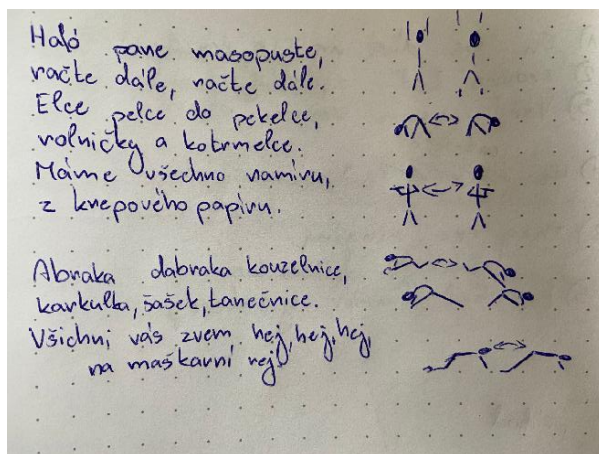 Haló pane masopuste,
račte dále, račte dále.
Elce pelce do pekelce,
rolničky a kotrmelce.
Máme všechno namíru,
z krepového papíru.
Abraka dabraka kouzelnice,
karkulka, šašek, tanečnice.
Všichni vás zvem hej, hej, hej,
na maškarní rej